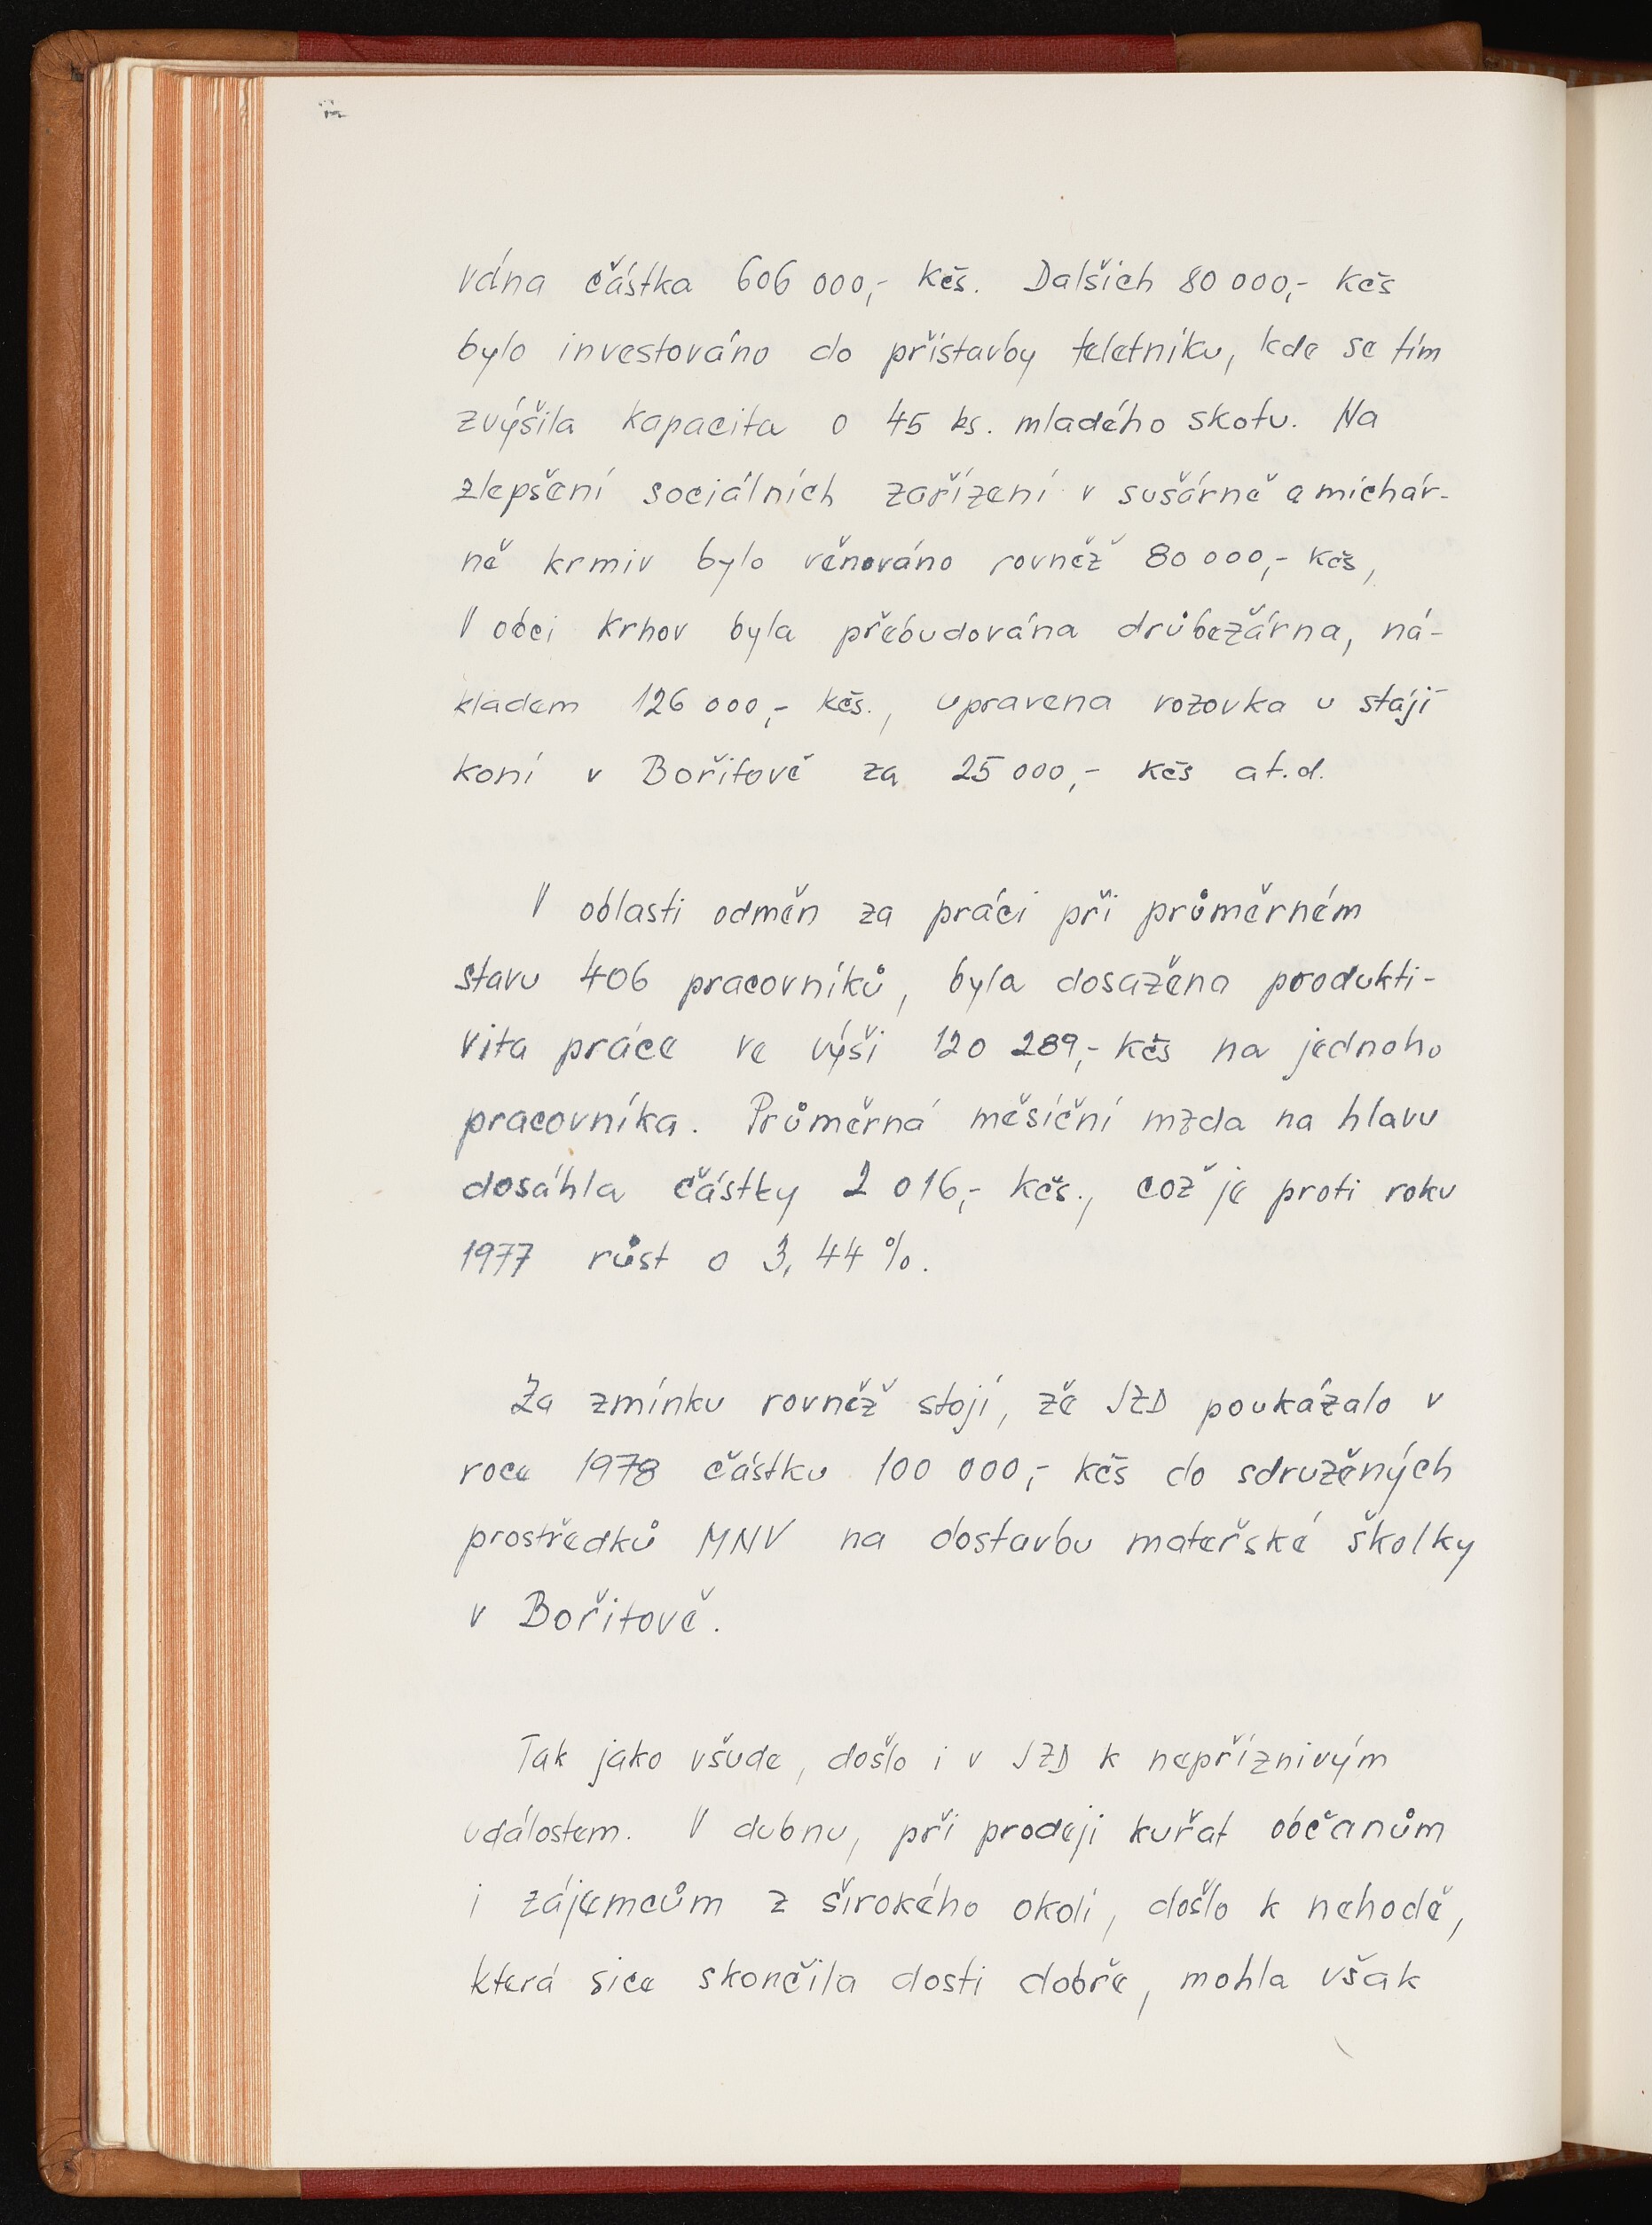 vána částka 606 000,- Kčs. Dalších 80 000,- Kčs
bylo investováno do přístavby teletníku, kde se tím
zvýšila kapacita o 45 ks. mladého skotu. Na
zlepšení sociálních zařízení v sušárně a míchár-
ně krmiv bylo věnováno rovněž 80 000,- Kčs,
V obci Krhov byla přebudována drůbežárna, ná-
kladem 126 000,- Kčs., upravena vozovka u stájí
koní v Bořitově za 25 000,- Kčs at.d.
V oblasti odměn za práci při průměrném
stavu 406 pracovníků, byla dosažena produkti-
vita práce ve výši 120 289,- Kčs na jednoho
pracovníka. Průměrná měsíční mzda na hlavu
dosáhla částky 2 016,- Kčs., což je proti roku
1977 růst o 3,44 %.
Za zmínku rovněž stojí, že JZD poukázalo v
roce 1978 částku 100 000,- Kčs do sdružených
prostředků MNV na dostavbu mateřské školky
v Bořitově.
Tak jako všude, došlo i v JZD k nepříznivým
událostem. V dubnu, při prodeji kuřat občanům
i zájemcům z širokého okolí, došlo k nehodě,
která sice skončila dosti dobře, mohla však